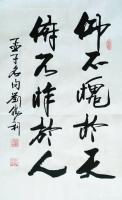 仰不愧於天
俯不怍於人
孟子名句劉俊利